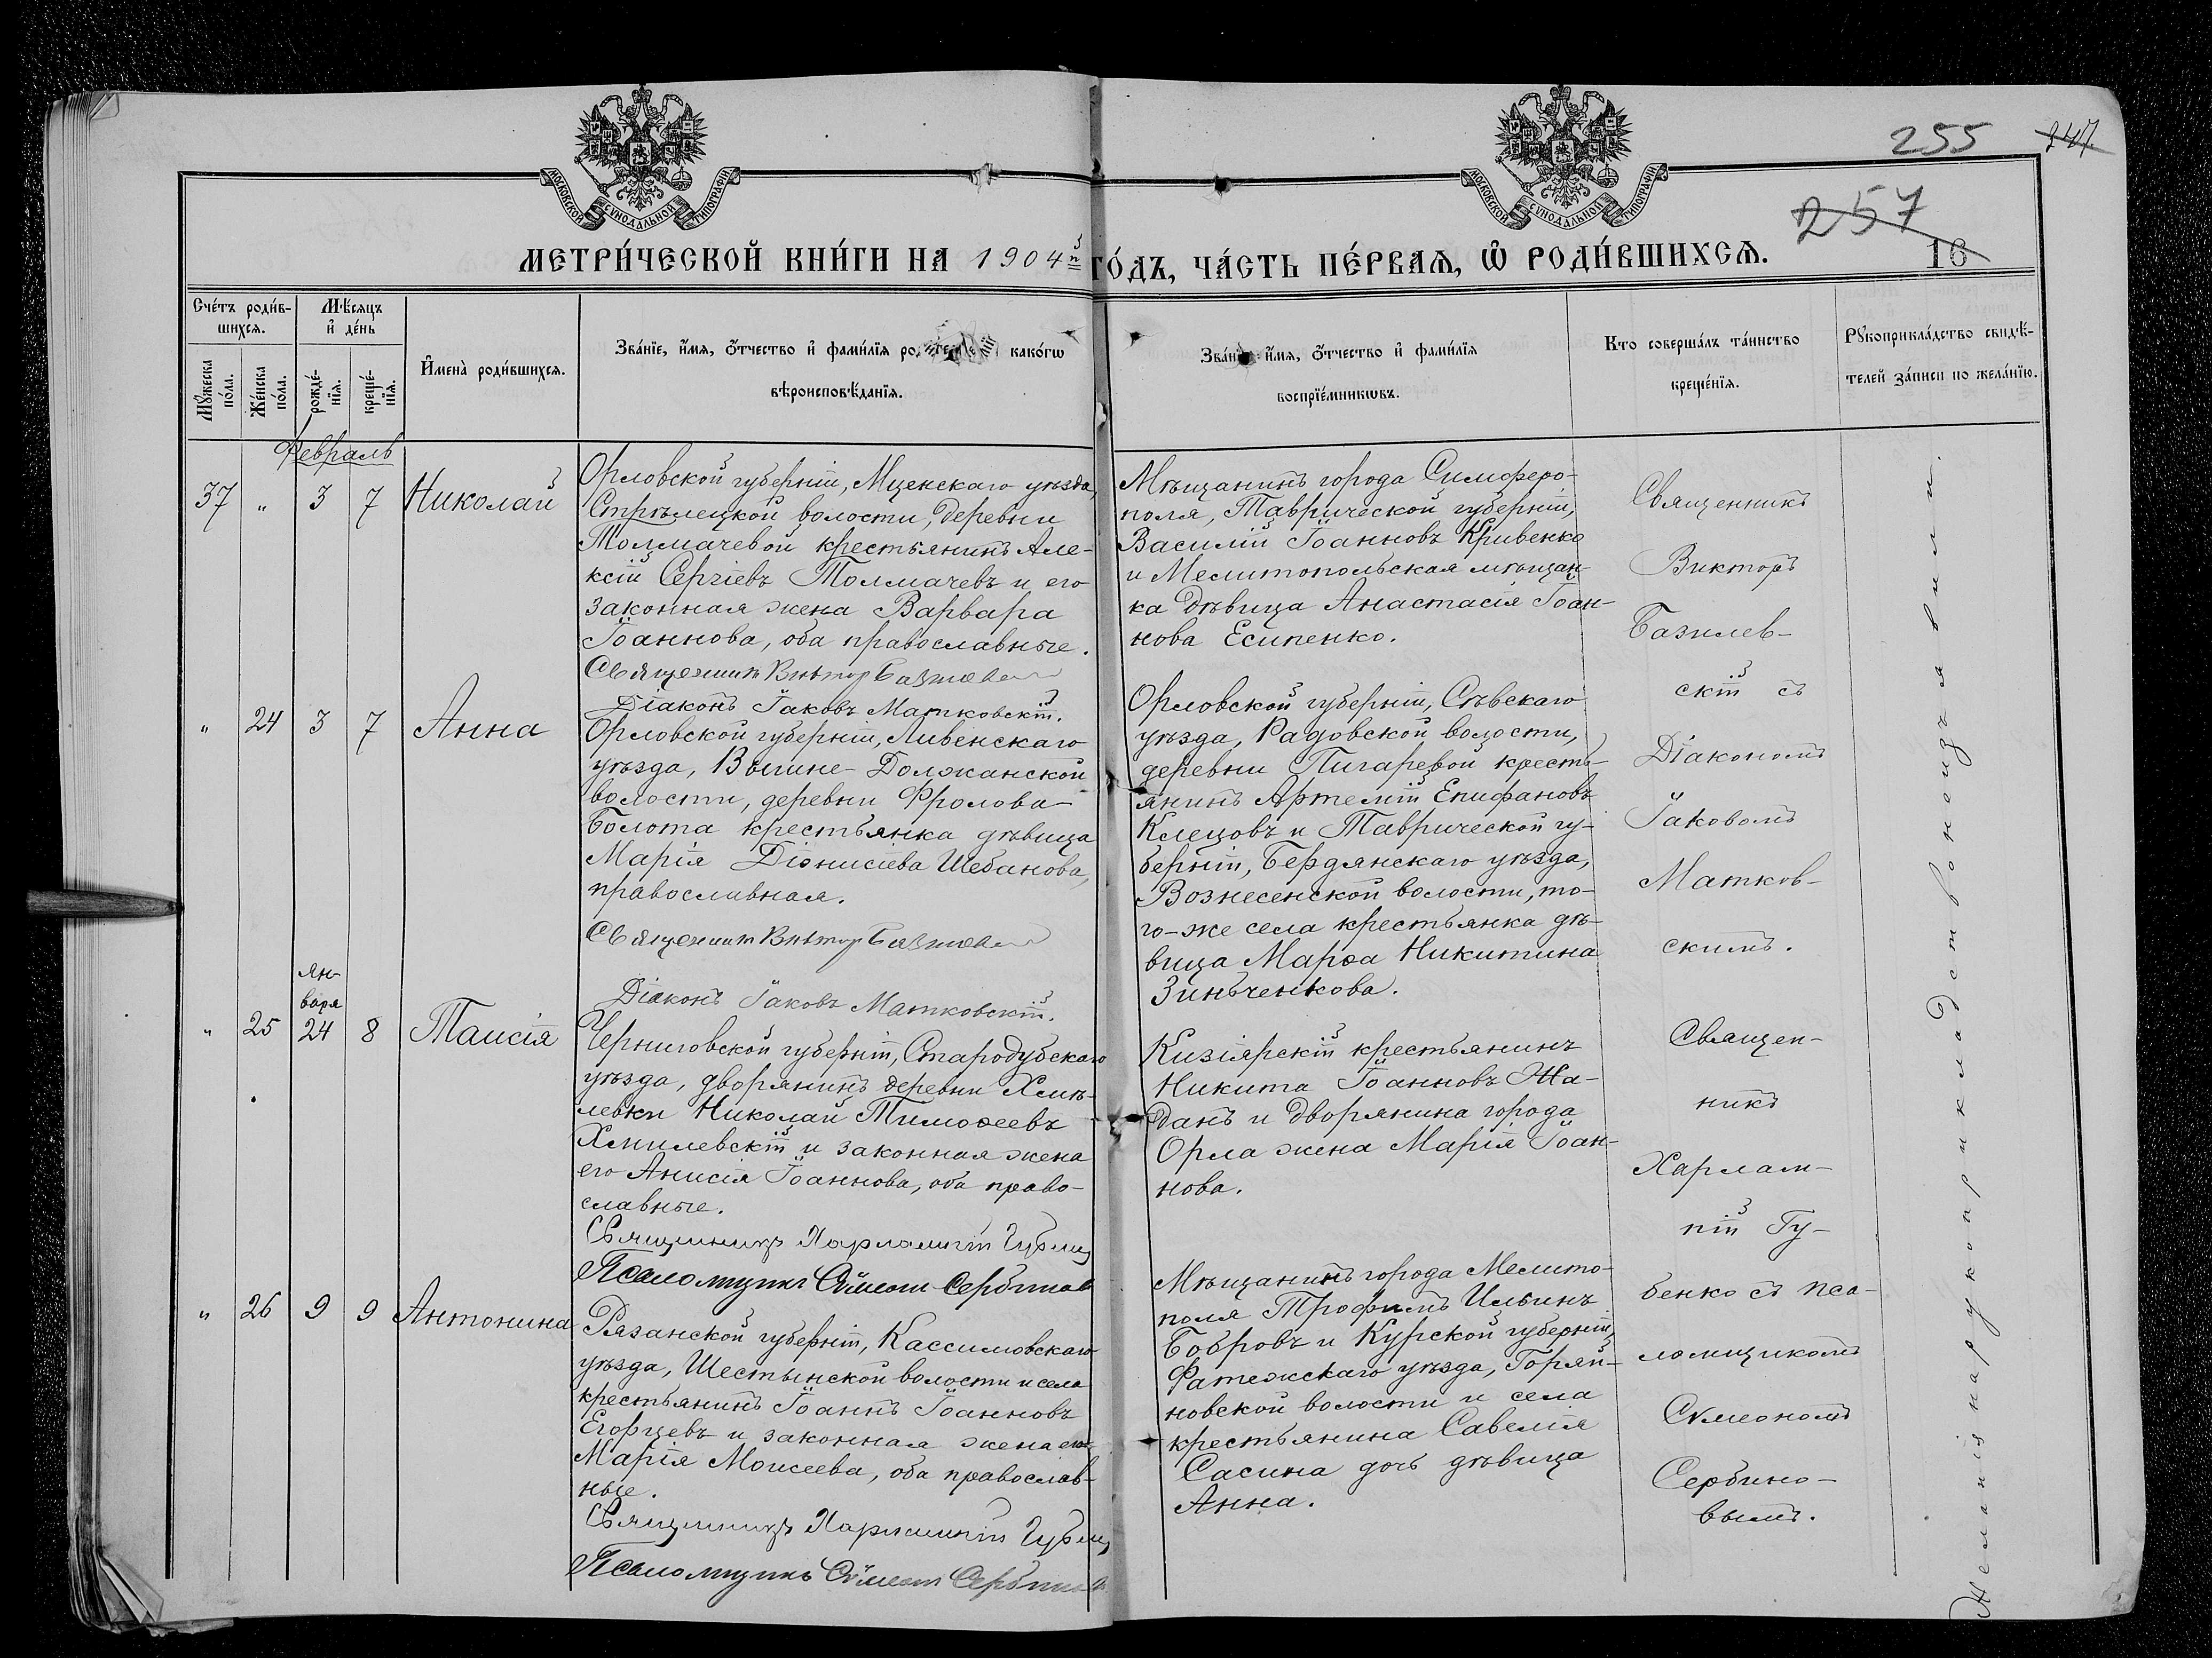 МОСКОВСКОЙ СѴНОДАЛЬНОЙ ТИПОГРАФІИ
МОСКОВСКОЙ СѴНОДАЛЬНОЙ ТИПОГРАФІИ
255
247.
257
16
МЕТРИ́ЧЕСКОЙ КНИ́ГИ НА 1904й
ГО́ДЪ, ЧА́СТЬ ПЕ́РВАѦ, Ѿ РОДИ́ВШИХСѦ.
Сче́тъ роди́в-
шихсѧ.
Мꙋ́жеска по́ла.
Же́нска по́ла.
Мѣ́сѧцъ
и҆ де́нь
рожде́-
нїѧ.
креще́-
нїѧ.
И҆мена̀ роди́вшихсѧ.
Зва́нїе, и҆́мѧ, ѻ҆́тчество и҆ фами́лїѧ како́гѡ
вѣроисповѣ́данїѧ.
и҆́мѧ, ѻ҆́тчество и҆ фами́лїѧ
воспрїе́мникѡвъ.
Кто соверша́лъ та́инство
креще́нїѧ.
Рꙋкоприкла́дство свидѣ́-
телей за́писи по жела́нїю.
Февраль
37 „ 3 7 Николай
Орловской губерніи, Мценскаго уѣзда,
Стрѣлецкой волости, деревни
Толмачевой крестьянинъ Але-
ксій Сергіевъ Толмачевъ и его
законная жена Варвара
Іоаннова, оба православные.
Священникъ Виктор Базилев
Діаконъ Іаковъ Матковскій.
Мѣщанинъ города Симферо-
поля, Таврической губерніи,
Василій Іоанновъ Кривенко
и Мелитопольская мѣщан-
ка дѣвица Анастасія Іоан-
нова Есипенко.
Священникъ
Викторъ
Базилев-
скій съ
Діакономъ
Іаковомъ
Матков-
скимъ.
„ 24 3 7 Анна
Орловской губерніи, Ливенскаго
уѣзда, Вышне-Должанской
волости, деревни Фролова-
Болота крестьянка дѣвица
Марія Діонисіева Шебанова,
православная.
Священникъ Виктор Базилев
Діаконъ Іаковъ Матковскій.
Орловской губерніи, Сѣвскаго
уѣзда, Радовской волости,
деревни Пигаревой кресть-
янинъ Артемій Епифановъ
Клецовъ и Таврической гу-
берніи, Бердянскаго уѣзда,
Вознесенской волости, то-
го-же села крестьянка дѣ-
вица Марѳа Никитина
Зинъченкова.
ян-
варя
„ 25 24 8 Таисія
Черниговской губерніи, Стародубскаго
уѣзда, дворянинъ деревни Хмѣ-
левки Николай Тимоѳеевъ
Хмилевскій и законная жена
его Анисія Іоаннова, оба право-
славные.
Священникъ Харлампій Губен
Псаломщикъ Сѵмеонъ Сербинов
Кизіярскій крестьянинъ
Никита Іоанновъ Жа-
данъ и дворянина города
Орла жена Марія Іоан-
нова.
Священ-
никъ
Харлам-
пій Гу-
бенко съ пса-
ломщикомъ
Сѵмеономъ
Сербино-
вымъ.
„ 26 9 9 Антонина
Рязанской губерніи, Кассимовскаго
уѣзда, Шестьинской волости и села
крестьянинъ Іоаннъ Іоанновъ
Егорцевъ и законная жена его
Марія Моисеева, оба православ-
ные.
Священникъ Харлампій Губен
Псаломщикъ Сѵмеонъ Сербинов
Мѣщанинъ города Мелито-
поля Трофимъ Ильинъ
Бобровъ и Курской губерніи,
Фатежскаго уѣзда, Горяй-
новской волости и села
крестьянина Савелія
Сасина дочь дѣвица
Анна.
Желанія на рукоприкладство не изъявили.